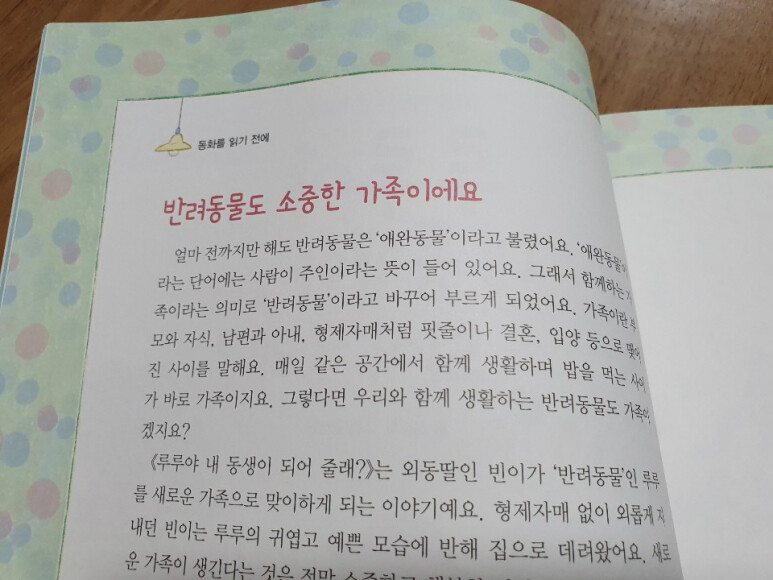 동화를 읽기 전에
반려동물도 소중한 가족이에요
얼마 전까지만 해도 반려동물은 '애완동물'이라고 불렸어요. '애완동물'이
라는 단어에는 사람이 주인이라는 뜻이 들어 있어요. 그래서 함께하는 가
족이라는 의미로 '반려동물'이라고 바꾸어 부르게 되었어요. 가족이란 부
모와 자식, 남편과 아내, 형제자매처럼 핏줄이나 결혼, 입양 등으로 맺어
진 사이를 말해요. 매일 같은 공간에서 함께 생활하며 밥을 먹는 사이
가 바로 가족이지요. 그렇다면 우리와 함께 생활하는 반려동물도 가족이
겠지요?
《루루야 내 동생이 되어 줄래?》는 외동딸인 빈이가 '반려동물'인 루루
를 새로운 가족으로 맞이하게 되는 이야기예요. 형제자매 없이 외롭게 지
내던 빈이는 루루의 귀엽고 예쁜 모습에 반해 집으로 데려왔어요. 새로
운 가족이 생긴다는 것은 정말 소중하고